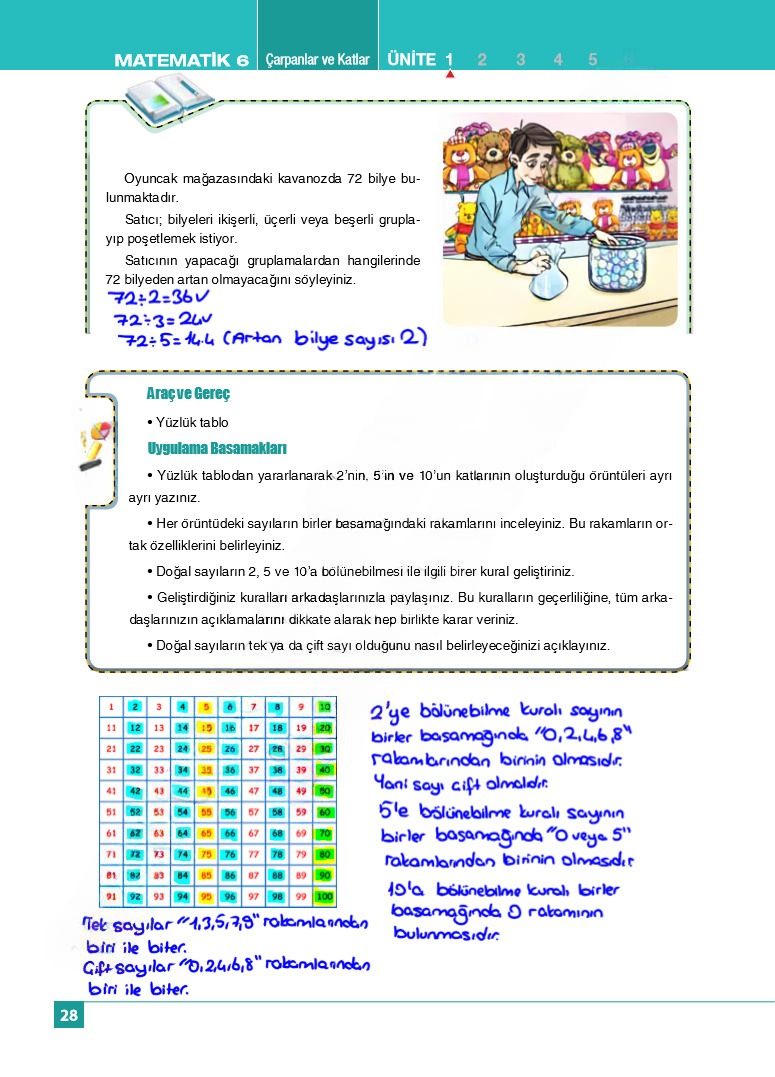 MATEMATİK 6 Çarpanlar ve Katlar ÜNİTE 1 2 3 4 5 6
Oyuncak mağazasındaki kavanozda 72 bilye bu-
lunmaktadır.
Satıcı; bilyeleri ikişerli, üçerli veya beşerli grupla-
yıp poşetlemek istiyor.
Satıcının yapacağı gruplamalardan hangilerinde
72 bilyeden artan olmayacağını söyleyiniz.
72÷2=36✓
72÷3=24✓
72÷5=14.4 (Artan bilye sayısı 2)
Araç ve Gereç
• Yüzlük tablo
Uygulama Basamakları
• Yüzlük tablodan yararlanarak 2’nin, 5’in ve 10’un katlarının oluşturduğu örüntüleri ayrı
ayrı yazınız.
• Her örüntüdeki sayıların birler basamağındaki rakamlarını inceleyiniz. Bu rakamların or-
tak özelliklerini belirleyiniz.
• Doğal sayıların 2, 5 ve 10’a bölünebilmesi ile ilgili birer kural geliştiriniz.
• Geliştirdiğiniz kuralları arkadaşlarınızla paylaşınız. Bu kuralların geçerliliğine, tüm arka-
daşlarınızın açıklamalarını dikkate alarak hep birlikte karar veriniz.
• Doğal sayıların tek ya da çift sayı olduğunu nasıl belirleyeceğinizi açıklayınız.
1 2 3 4 5 6 7 8 9 10
11 12 13 14 15 16 17 18 19 20
21 22 23 24 25 26 27 28 29 30
31 32 33 34 35 36 37 38 39 40
41 42 43 44 45 46 47 48 49 50
51 52 53 54 55 56 57 58 59 60
61 62 63 64 65 66 67 68 69 70
71 72 73 74 75 76 77 78 79 80
81 82 83 84 85 86 87 88 89 90
91 92 93 94 95 96 97 98 99 100
2'ye bölünebilme kuralı sayının
birler basamağında "0,2,4,6,8"
rakamlarından birinin olmasıdır.
Yani sayı çift olmalıdır.
5'e bölünebilme kuralı sayının
birler basamağında "0 veya 5"
rakamlarından birinin olmasıdır
10'a bölünebilme kuralı birler
basamağında 0 rakamının
bulunmasıdır.
Tek sayılar "1,3,5,7,9" rakamlarından
biri ile biter.
Çift sayılar "0,2,4,6,8" rakamlarından
biri ile biter.
28